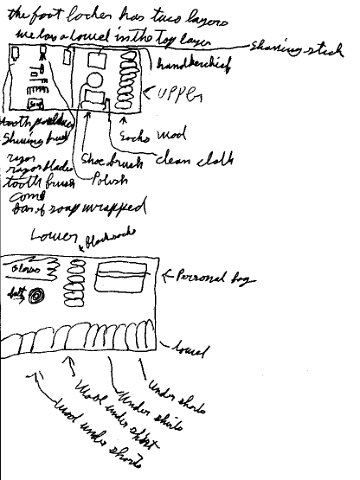 the foot locker has two layers
we lay a towel in the top layer
shaving stick
handkerchief
UPPER
tooth powder
Shaving brush
razor
razor blades
tooth brush
comb
bar of soap wrapped
Shoe brush
Polish
Socks
clean cloth
Lower
Black socks
Gloves
belt
Personal bag
towel
under shorts
Under shirts
Wool under shirt
Wool under shorts